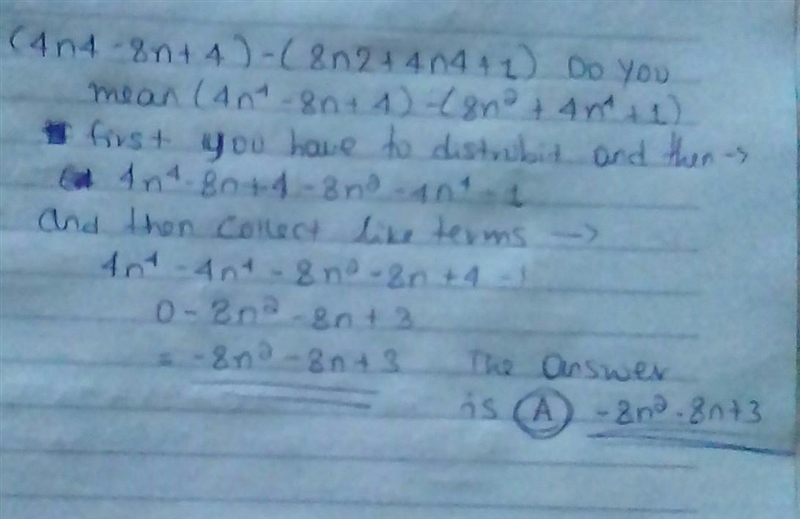 (4n4-8n+4)-(8n2+4n4+1) Do you
mean (4n⁴-8n+4)-(8n²+4n⁴+1)
first you have to distrubit and then →
4n⁴-8n+4-8n²-4n⁴-1
and then collect like terms →
4n⁴-4n⁴-8n²-8n+4-1
0-8n²-8n+3
= -8n²-8n+3 The answer
is (A) -8n²-8n+3